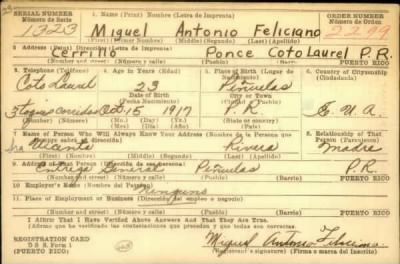 SERIAL NUMBER 1. Name (Print) Nombre (Letra de Imprenta) ORDER NUMBER
Número de Serie Número de Orden
1323 Miguel Antonio Feliciano 2299
(First) (Primero) (Middle) (Segundo) (Last) (Apellido)
2. Address (Print) Dirección (Letra de Imprenta)
Cerrillo Ponce Coto Laurel P.R.
(Number and street) (Número y calle) (Town) (Pueblo) PUERTO RICO
3. Telephone (Teléfono) 4. Age in Years (Edad) 5. Place of Birth (Lugar de Nacimiento) 6. Country of Citizenship (Ciudadanía)
Coto Laurel 23 Peñuelas
Date of Birth City or Town
(Fecha Nacimiento)
Oct. 15 1917 P.R.
(Mo.) (Day) (Yr.) (State or country)
(Mes) (Día) (Año)
7. Name of Person Who Will Always Know Your Address (Nombre de la Persona que 8. Relationship of That Person (Parentesco)
Sra Vicenta Rivera Madre
(First) (Primero) (Middle) (Segundo) (Last) (Apellido)
9. Address of That Person (Dirección de esa persona)
Entrega General Peñuelas P.R.
(Number and street) (Número y calle) (Town) (Pueblo) PUERTO RICO
10. Employer's Name (Nombre del Patrono)
Ninguno
11. Place of Employment or Business (Dirección del empleo o negocio)
(Number and street) (Número y calle) (Town) (Pueblo) PUERTO RICO
I Affirm That I Have Verified Above Answers And That They Are True.
(Afirmo que he verificado las contestaciones que preceden y que todas son correctas)
REGISTRATION CARD
D S S. Form 1 Miguel Antonio Feliciano
Registrant's signature) (Firma o marca del Inscrito)